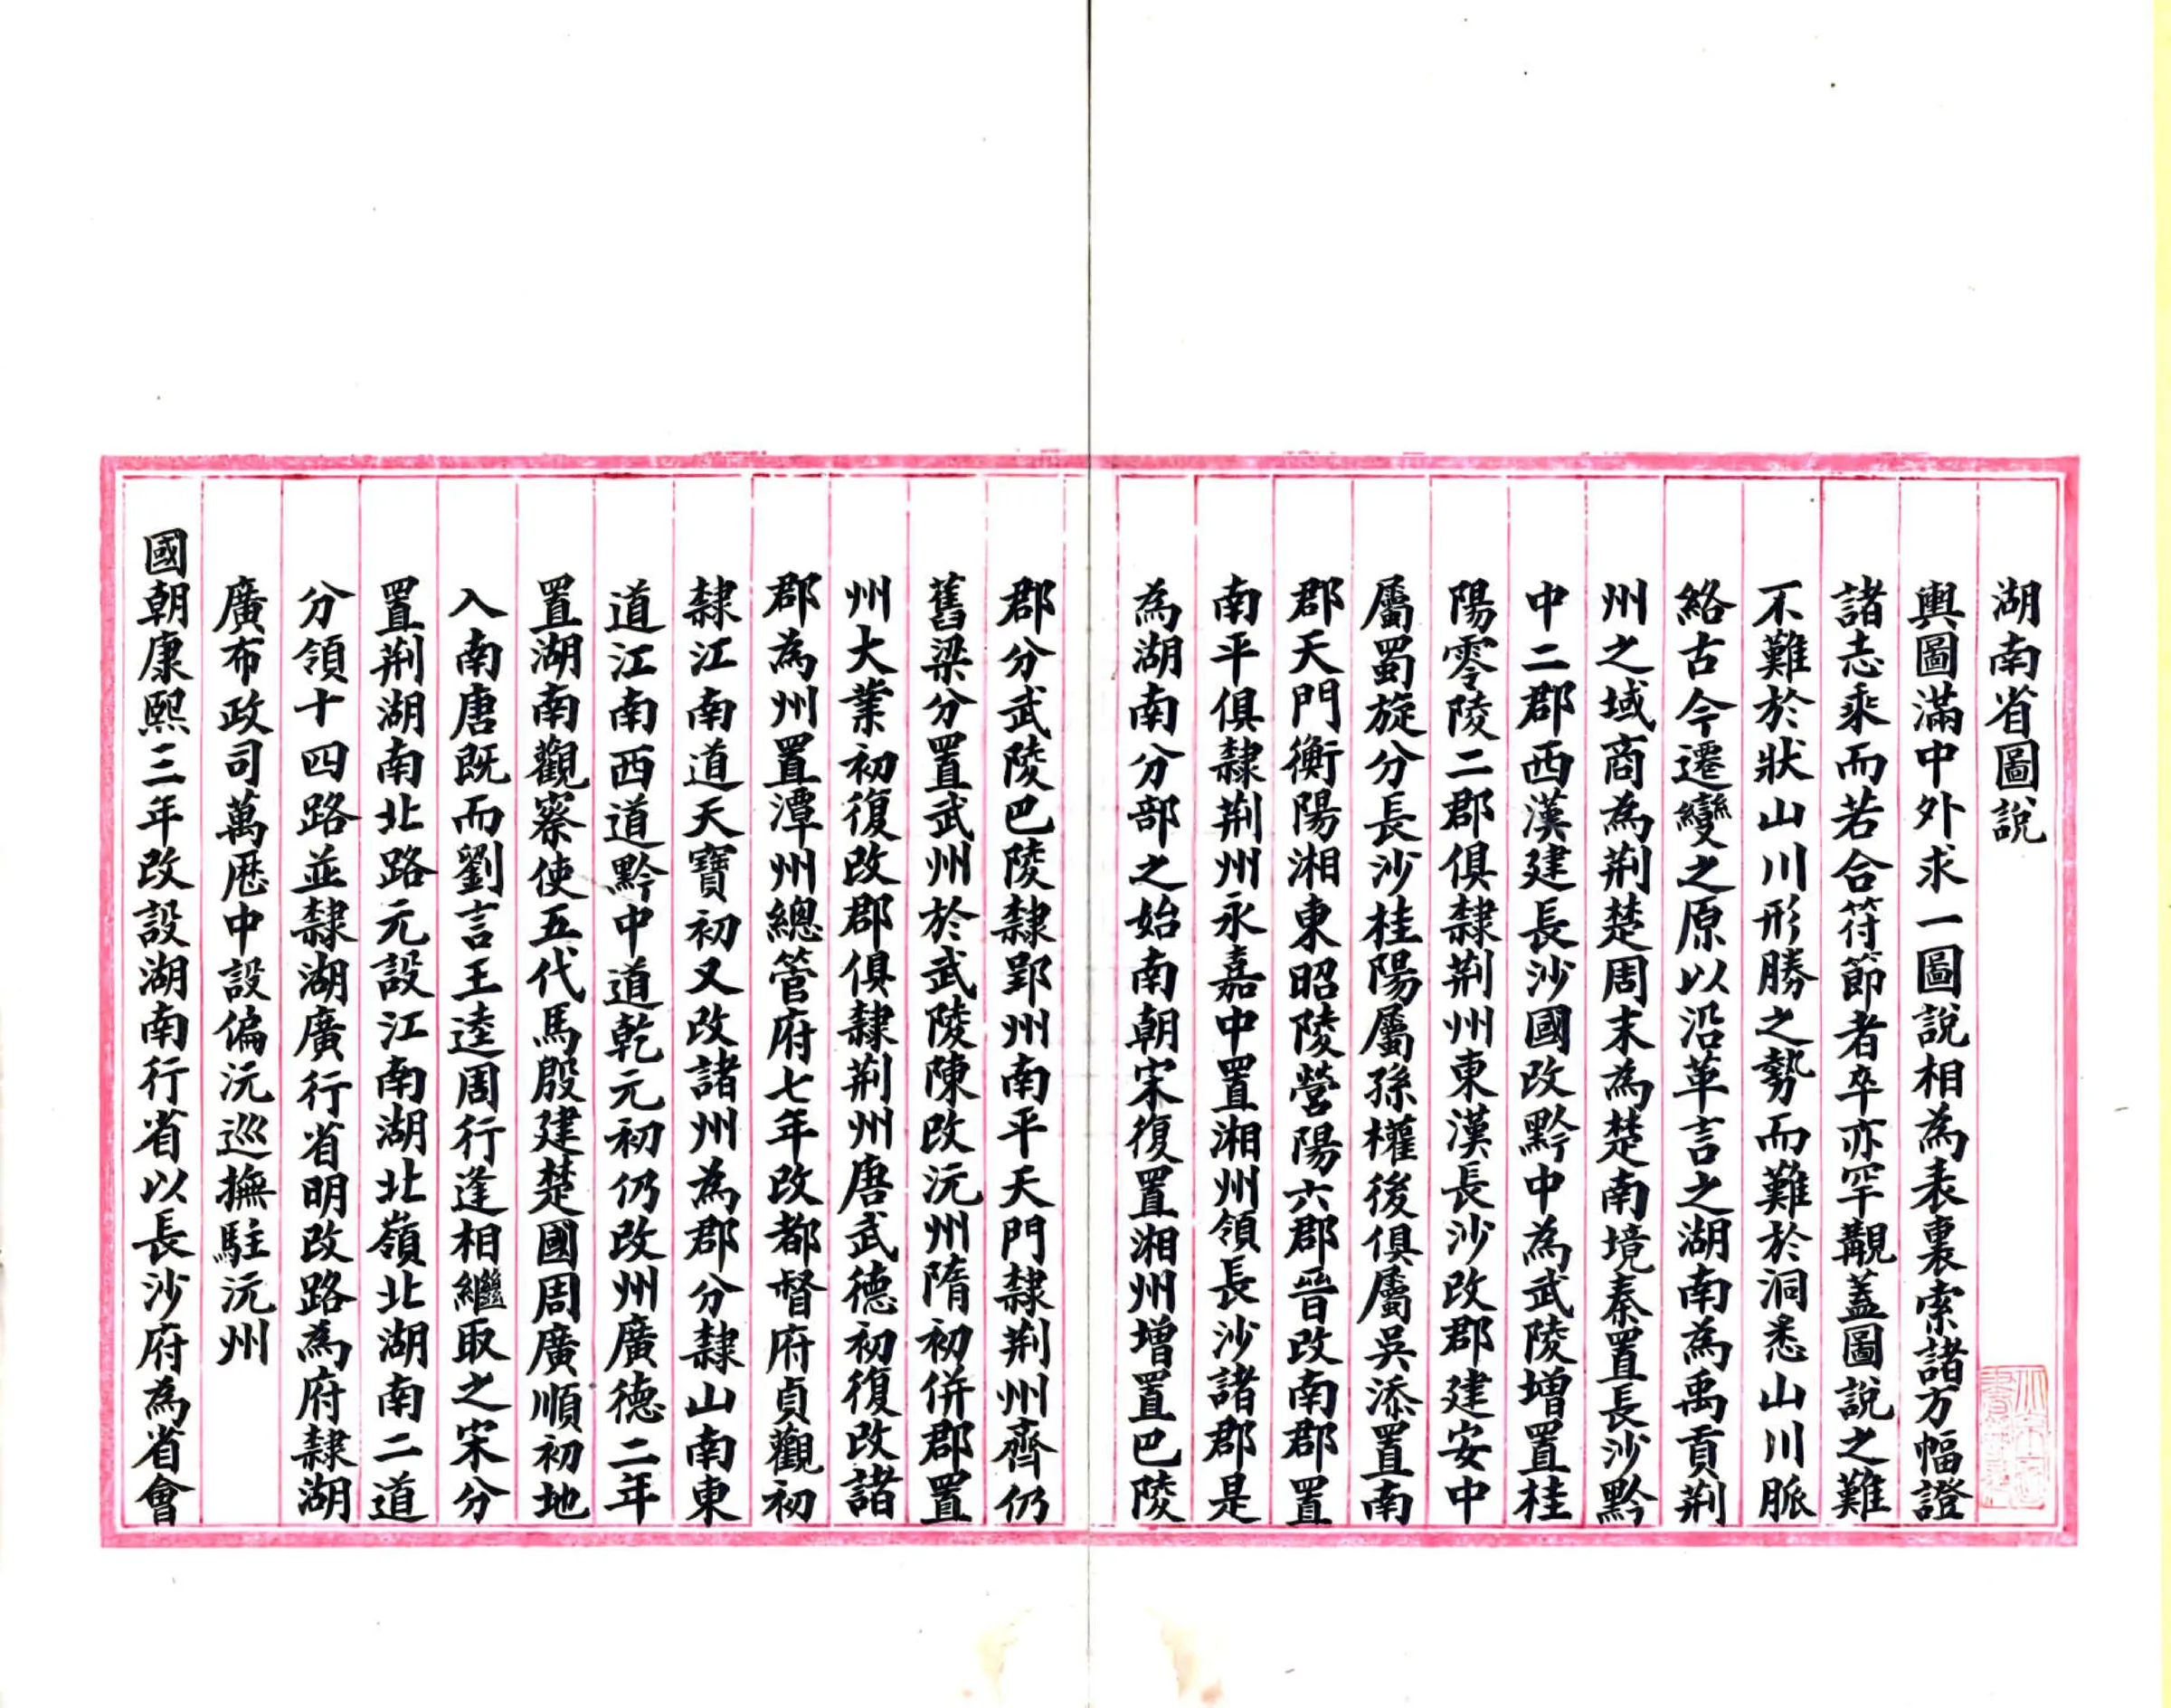 湖南省圖說
輿圖滿中外求一圖說相為表裏索諸方幅證
諸志乘而若合符節者卒亦罕覯蓋圖說之難
不難於狀山川形勝之勢而難於洞悉山川脈
絡古今遷變之原以沿革言之湖南為禹貢荆
州之域商為荆楚周末為楚南境秦置長沙黔
中二郡西漢建長沙國改黔中為武陵增置桂
陽零陵二郡俱隸荆州東漢長沙改郡建安中
屬蜀旋分長沙桂陽屬孫權後俱屬吳添置南
郡天門衡陽湘東昭陵營陽六郡晉改南郡置
南平俱隸荆州永嘉中置湘州領長沙諸郡是
為湖南分部之始南朝宋復置湘州增置巴陵
郡分武陵巴陵隸郢州南平天門隸荆州齊仍
舊梁分置武州於武陵陳改沅州隋初併郡置
州大業初復改郡俱隸荆州唐武德初復改諸
郡為州置潭州總管府七年改都督府貞觀初
隸江南道天寶初又改諸州為郡分隸山南東
道江南西道黔中道乾元初仍改州廣德二年
置湖南觀察使五代馬殷建楚國周廣順初地
入南唐既而劉言王逵周行逢相繼取之宋分
置荆湖南北路元設江南湖北嶺北湖南二道
分領十四路並隸湖廣行省明改路為府隸湖
廣布政司萬厯中設偏沅巡撫駐沅州
國朝康熙三年改設湖南行省以長沙府為省會